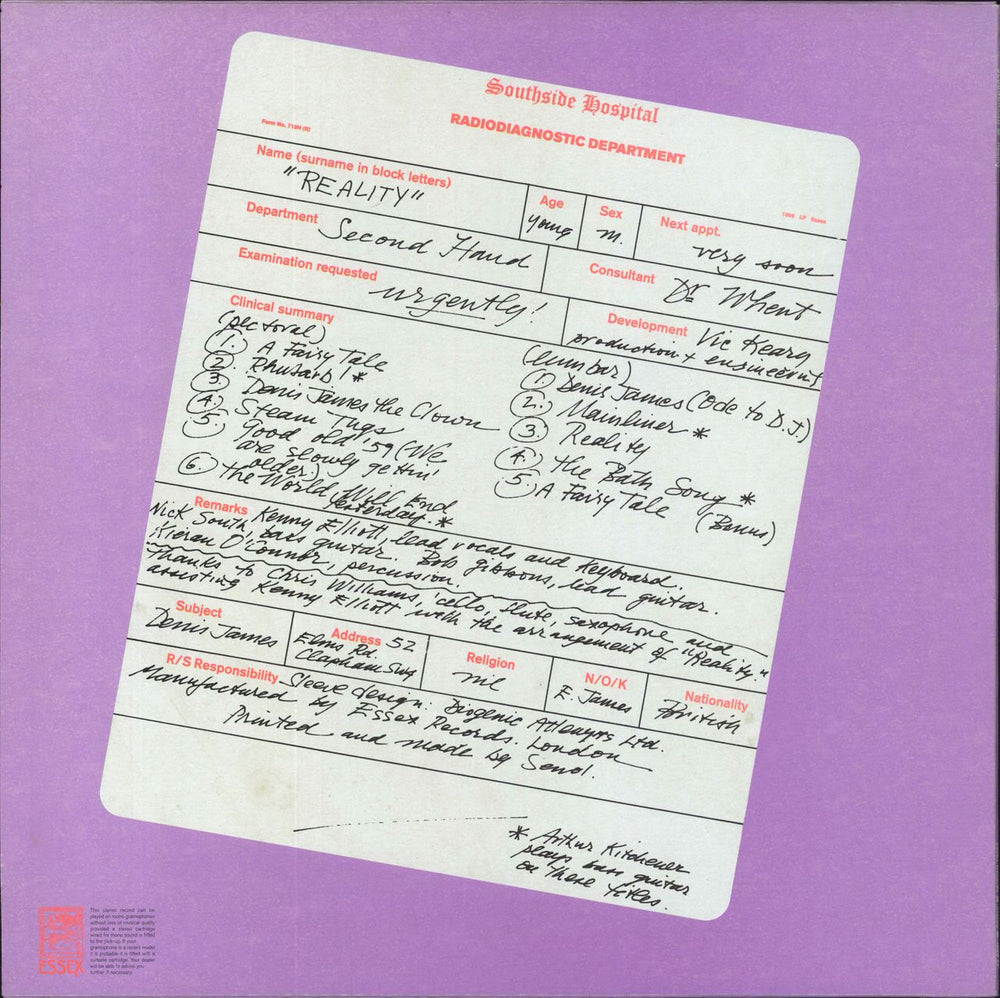 Southside Hospital
RADIODIAGNOSTIC DEPARTMENT
Form No. 718H (R)
Name (surname in block letters)
"REALITY"
Age
young
Sex
m.
Next appt.
very soon
1006 LP Essex
Department
Second Hand
Consultant
Dr Whent
Examination requested
urgently!
Development Vic Keary
production + engineering
Clinical summary
(pectoral)
1. A Fairy Tale
2. Rhubarb! *
3. Denis James the Clown
4. Steam Tugs
5. Good old '59 (We
are slowly gettin'
older)
6. The World Will End
Yesterday. *
(lumbar)
1. Denis James (Ode to D.J.)
2. Mainliner *
3. Reality
4. The Bath Song *
5. A Fairy Tale (Bonus)
Remarks Kenny Elliott, lead vocals and Keyboard.
Nick South, bass guitar. Bob gibbons, lead guitar.
Kieran O'Connor, percussion.
Thanks to Chris Williams, 'cello, flute, saxophone and
assisting Kenny Elliott with the arrangement of "Reality."
Subject
Denis James
Address 52
Elms Rd.
Clapham SW4
Religion
nil
N/O/K
E. James
Nationality
British
R/S Responsibility Sleeve design: Biogenic Attempts Ltd.
Manufactured by Essex Records. London
Printed and made by Senol.
* Arthur Kitchener
plays bass guitar
on these titles.
ESSEX
This stereo record can be
played on mono gramophones
without loss of musical quality
provided a stereo cartridge
wired for mono sound is fitted
to the pick-up. If your
gramophone is a recent model
it is probable it is fitted with a
suitable cartridge. Your dealer
will be able to advise you
further if necessary.